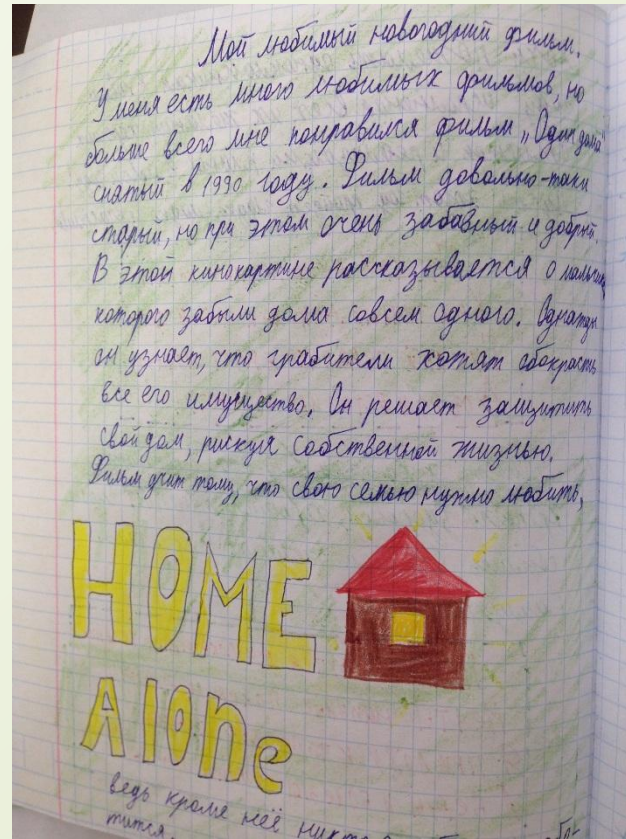 Мой любимый новогодний фильм.
У меня есть много любимых фильмов, но
больше всего мне понравился фильм „Один дома"
снятый в 1990 году. Фильм довольно-таки
старый, но при этом очень забавный и добрый.
В этой кинокартине рассказывается о мальчике
которого забыли дома совсем одного. Однажды
он узнает, что грабители хотят обокрасть
все его имущество. Он решает защитить
свой дом, рискуя собственной жизнью.
Фильм учит тому, что свою семью нужно любить,
HOME
Alone
ведь кроме неё никто